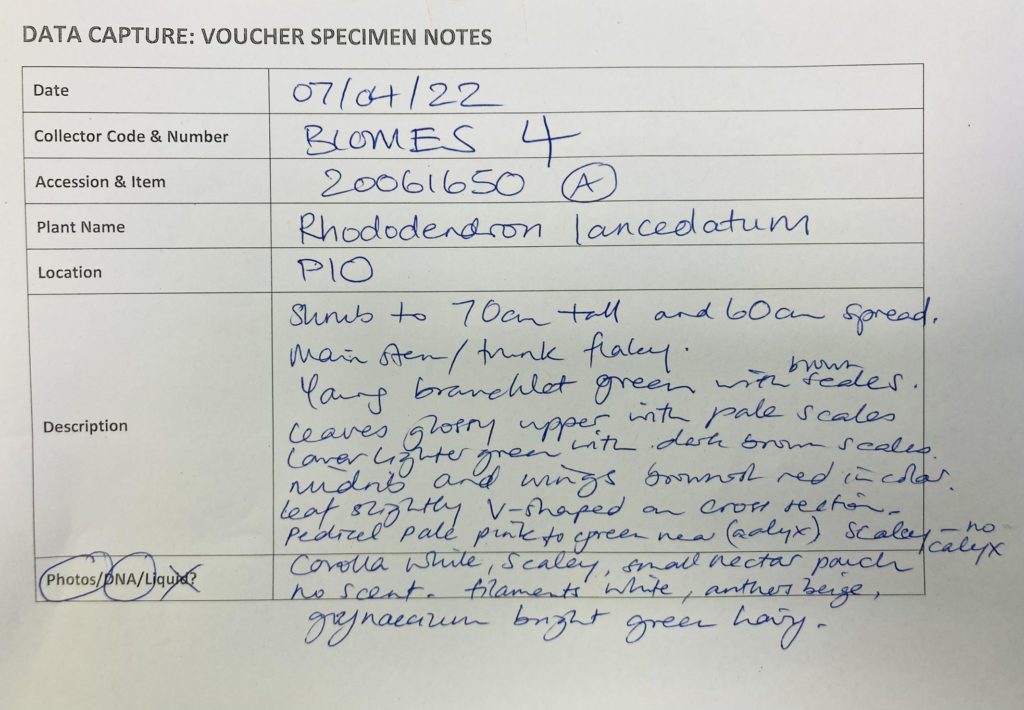 DATA CAPTURE: VOUCHER SPECIMEN NOTES
Date 07/04/22
Collector Code & Number BLOMES 4
Accession & Item 20061650 A
Plant Name Rhododendron lancedatum
Location P10
Description
Shrub to 70cm tall and 60cm spread.
Main stem/trunk flakey.
brown
Young branchlet green with scales.
Leaves glossy upper with pale scales
Lower lighter green with dark brown scales.
midrib and wings brownish red in color.
Leaf slightly V-shaped on cross section.
Pedicel pale pink to green near (calyx) scaley – no calyx
Photos/DNA/Liquid?
Corolla white, scaley, small nectar pouch
no scent. filaments white, anthers beige,
gynaecium bright green hairy.